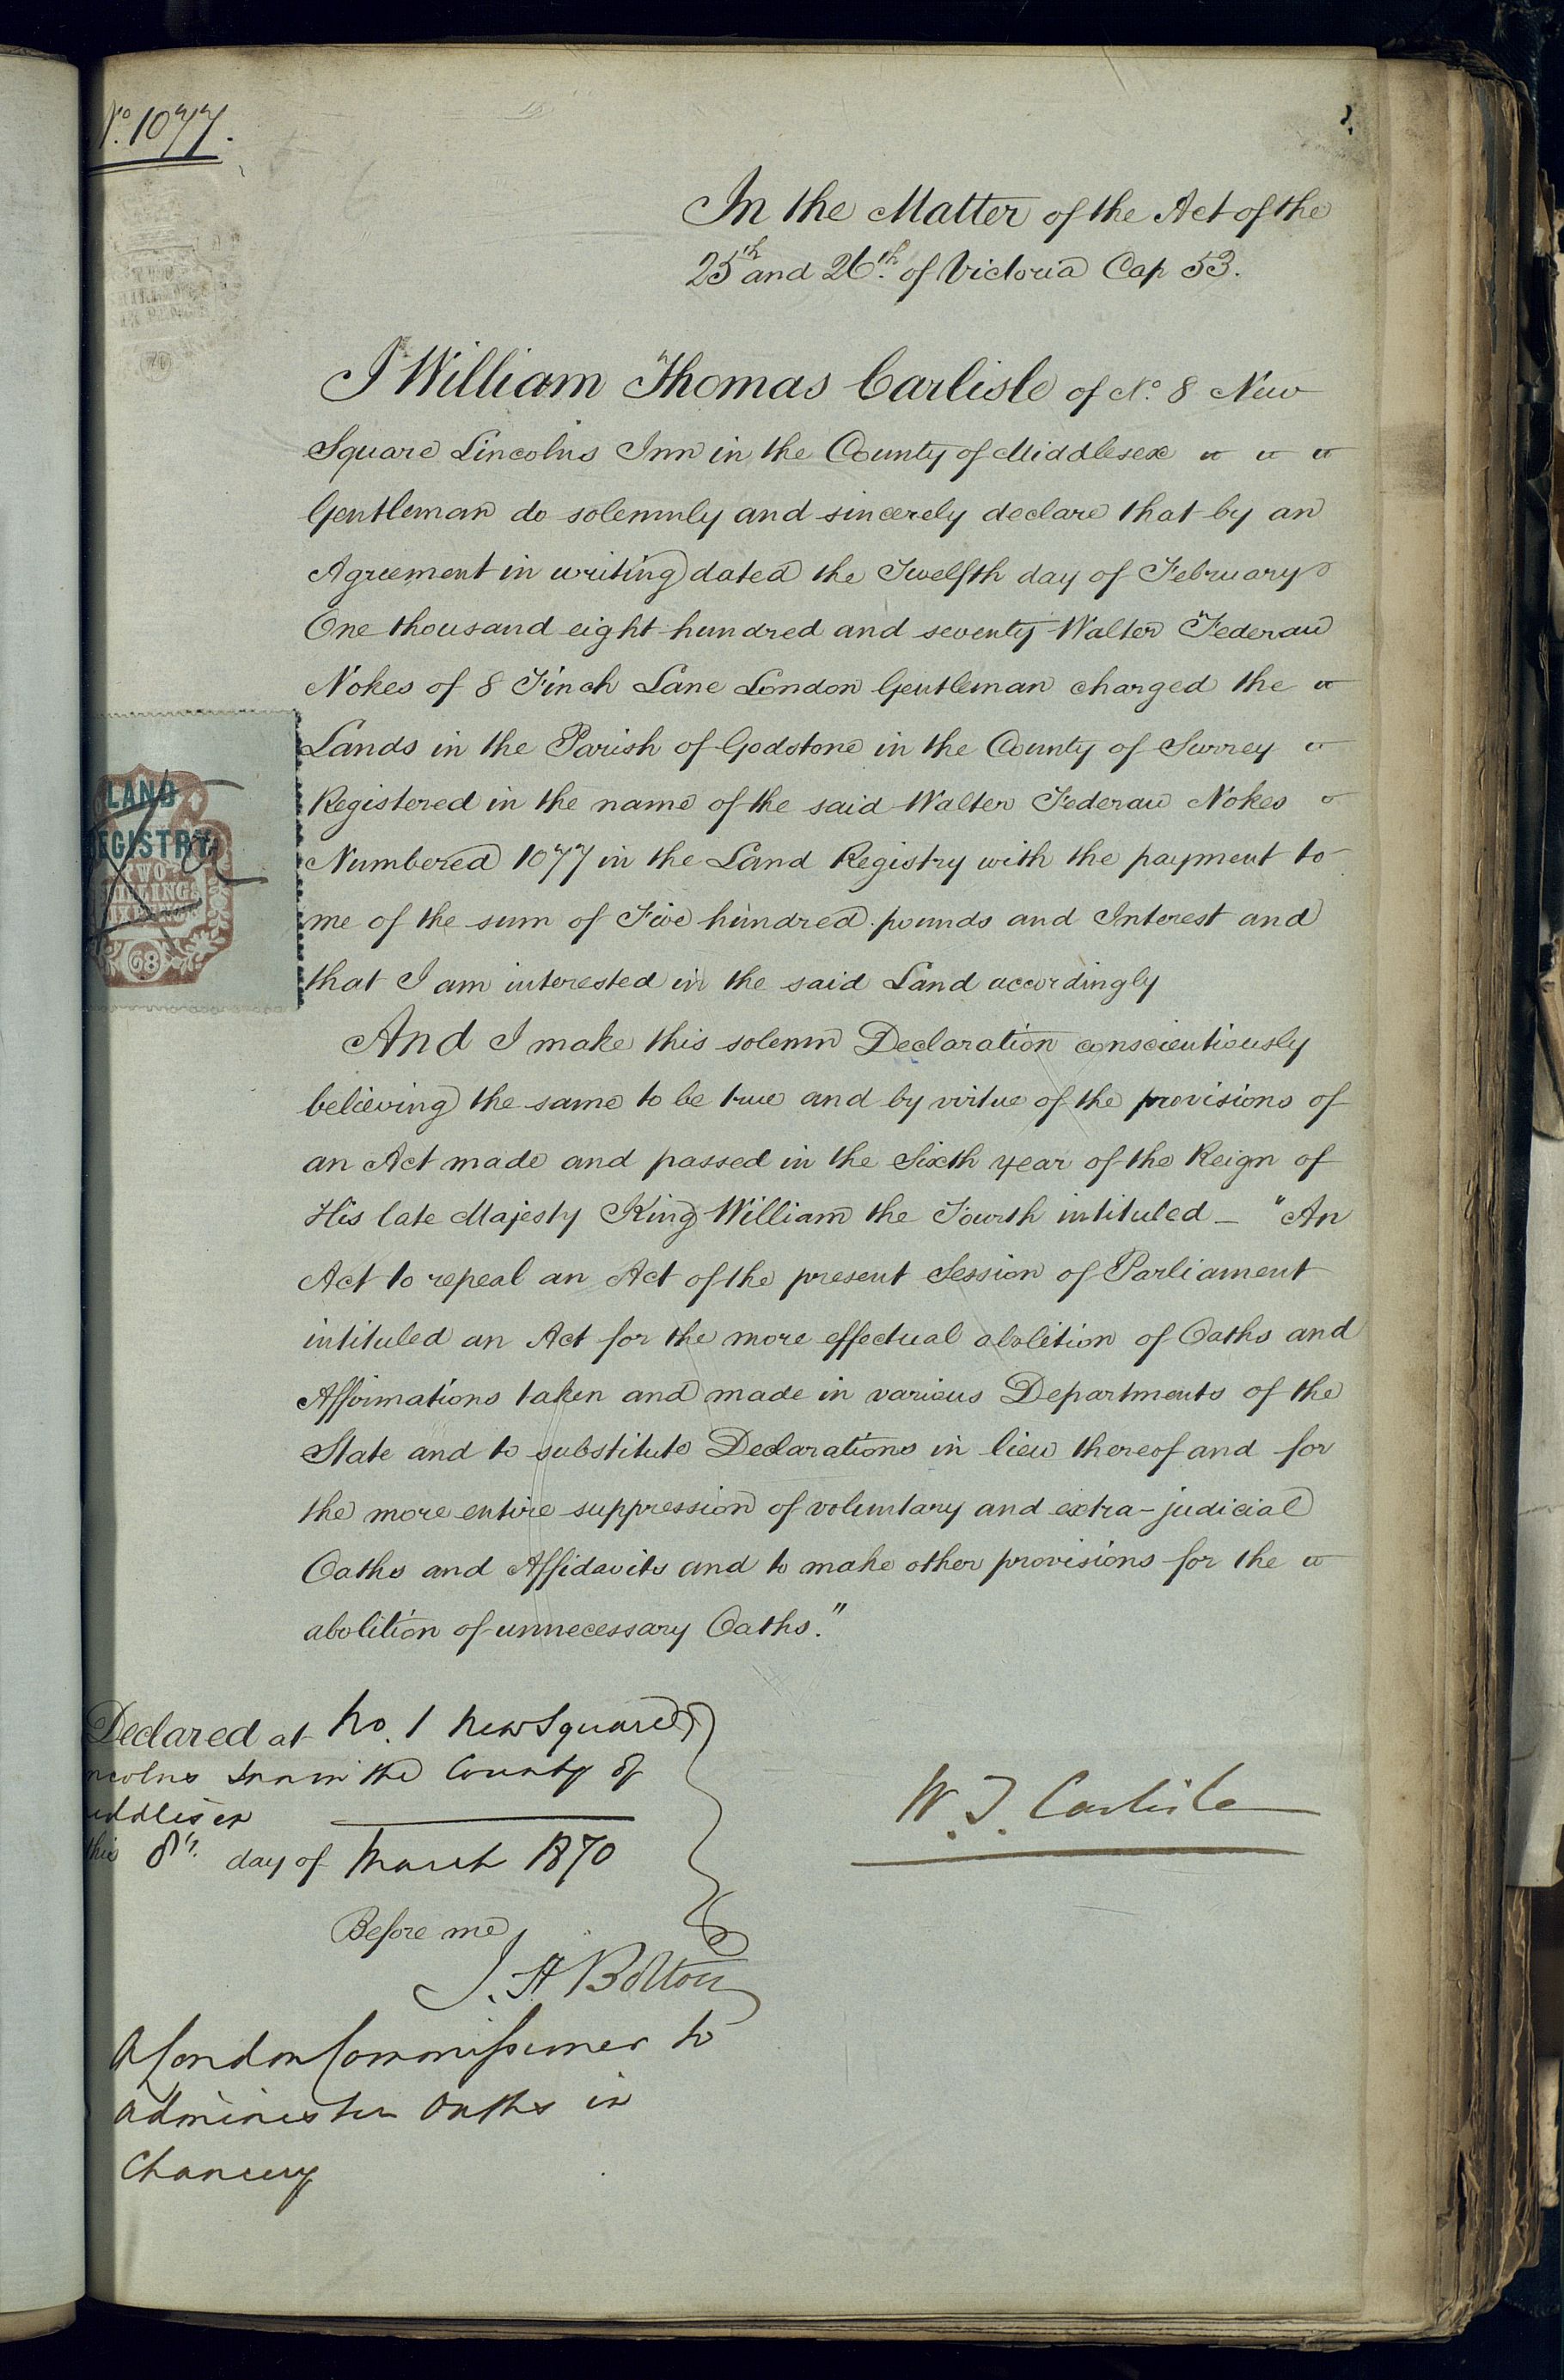 No. 1077.
In the Matter of the Act of the
25th and 26th of Victoria Cap 53.
I William Thomas Carlisle of No. 8 New
Square Lincolns Inn in the County of Middlesex
Gentleman do solemnly and sincerely declare that by an
Agreement in writing dated the Twelfth day of February
One thousand eight hundred and seventy Walter Federau
Nokes of 8 Finch Lane London Gentleman charged the
Lands in the Parish of Godstone in the County of Surrey
Registered in the name of the said Walter Federau Nokes
Numbered 1077 in the Land Registry with the payment to
me of the sum of Five hundred pounds and Interest and
that I am interested in the said Land accordingly
And I make this solemn Declaration conscientiously
believing the same to be true and by virtue of the provisions of
an Act made and passed in the Sixth year of the Reign of
His late Majesty King William the Fourth intituled – "An
Act to repeal an Act of the present Session of Parliament
intituled an Act for the more effectual abolition of Oaths and
Affirmations taken and made in various Departments of the
State and to substitute Declarations in lieu thereof and for
the more entire suppression of voluntary and extra-judicial
Oaths and Affidavits and to make other provisions for the
abolition of unnecessary Oaths."
LAND
REGISTRY
TWO
SHILLINGS
SIXPENCE
68
Declared at No. 1 New Square
Lincolns Inn in the County of
Middlesex
this 8th day of March 1870
Before me
J. A Bolton
A London Commissioner to
administer Oaths in
Chancery
W. T. Carlisle